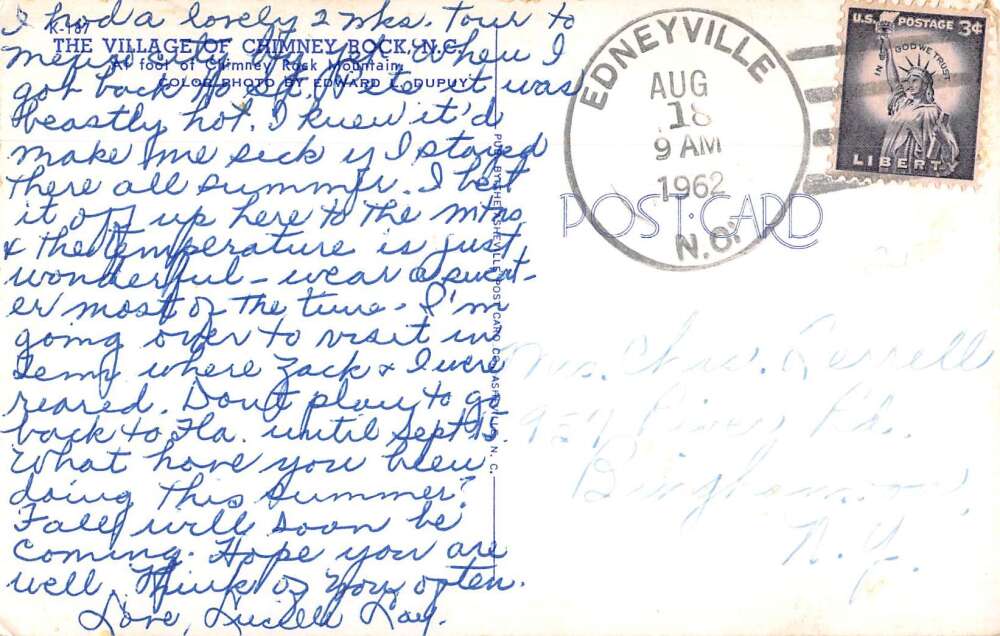 I had a lovely 2 wks. tour to
K-187
THE VILLAGE OF CHIMNEY ROCK, N.C.
At foot of Chimney Rock Mountain
COLOR PHOTO BY EDWARD L. DUPUY
Mexico City by . When I
got back to St. Pete it was
beastly hot. I knew it'd
make me sick if I stayed
there all summer. I beat
it off up here to the mtns
& the temperature is just
wonderful - wear a sweat-
er most of the time - I'm
going over to visit in
Tenn where Zack & I were
reared. Don't plan to go
back to Fla. until Sept 15
What have you been
doing this summer?
Fall will soon be
coming. Hope you are
well. Think of you often.
Love, Lucille Lay.
PUB. BY THE ASHEVILLE POST CARD CO., ASHEVILLE, N. C.
EDNEYVILLE
AUG
18
9 AM
1962
N.C.
U.S. POSTAGE 3¢
IN GOD WE TRUST
LIBERTY
POST CARD
Mrs. Chas.
Rd.
Binghamton
N.Y.